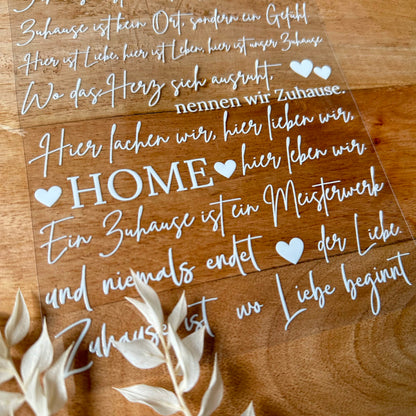 Zuhause ist kein Ort, sondern ein Gefühl
Hier ist Liebe, hier ist Leben, hier ist unser Zuhause
Wo das Herz sich ausruht,
nennen wir Zuhause.
Hier lachen wir, hier lieben wir,
HOME hier leben wir.
Ein Zuhause ist ein Meisterwerk
und niemals endet der Liebe.
Zuhause ist wo Liebe beginnt